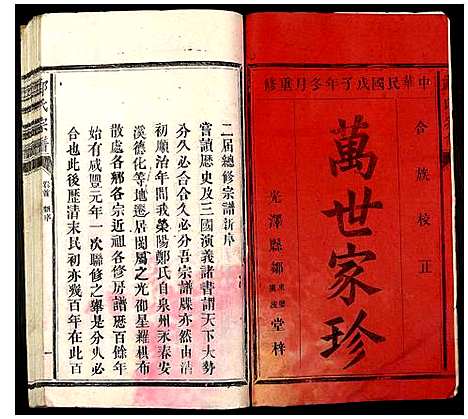 中華民國戊子年冬月重修
合族校正
萬世家珍
光澤縣鄒
堂梓
二屆總修宗譜新序
嘗讀歷史及三國演義諸書謂天下大勢
分久必合合久必分吾宗譜牒亦然由清
順治年間我滎陽鄭氏自泉州永春安
溪德化等地遷居閩屬之光邵星羅棋布
散處各鄉各宗近祖各修房譜歷百餘年
始有咸豐元年一次聯修之舉是分久必
合也此後歷清末民初亦幾百年在此百
氏宗譜
卷首
新序
一